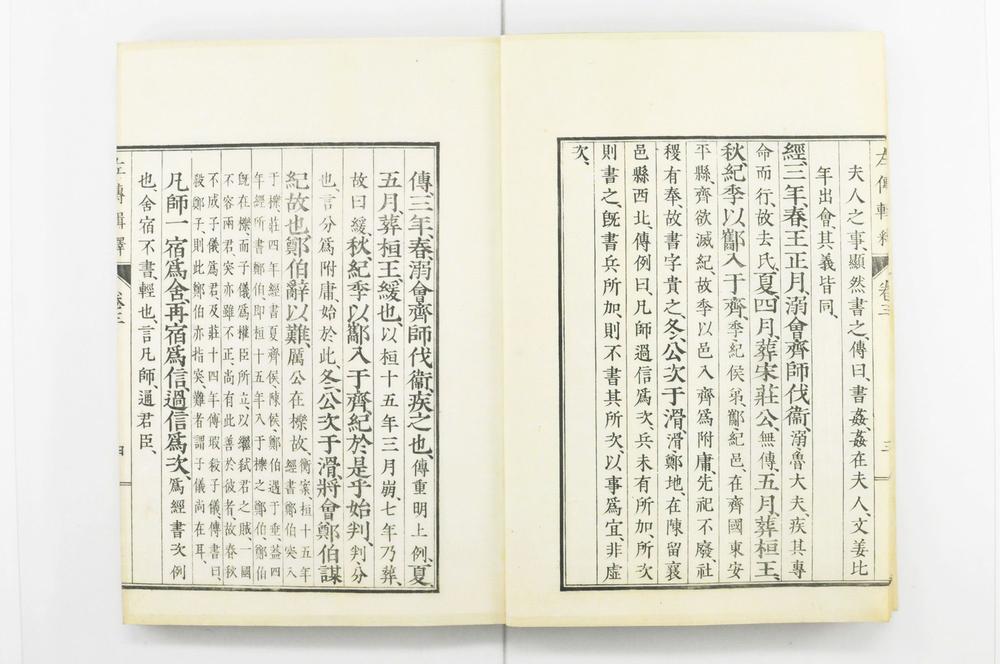 左傳輯釋 卷三 三
夫人之事、顯然書之、傳曰、書姦、姦在夫人、文姜比
年出會、其義皆同、
經、三年、春、王正月、溺會齊師伐衞、溺魯大夫、疾其專
命而行、故去氏、夏、四月、葬宋莊公、無傳、五月、葬桓王、
秋、紀季以酅入于齊、季紀侯弟、酅紀邑、在齊國東安
平縣、齊欲滅紀、故季以邑入齊爲附庸、先祀不廢、社
稷有奉、故書字貴之、冬、公次于滑、滑鄭地、在陳留襄
邑縣西北、傳例曰、凡師過信爲次、兵未有所加、所次
則書之、旣書兵所加、則不書其所次、以事爲宜、非虛
次、
傳、三年、春、溺會齊師伐衞、疾之也、傳重明上例、夏、
五月、葬桓王、緩也、以桓十五年三月崩、七年乃葬、
故曰緩、秋、紀季以酅入于齊、紀於是乎始判、判、分
也、言分爲附庸、始於此、冬、公次于滑、將會鄭伯謀
紀故也、鄭伯辭以難、厲公在櫟故、衡案、桓十五年
經書鄭伯突入
于櫟、莊四年經書夏齊侯、陳侯、鄭伯遇于垂、蓋四
年經所書鄭伯、卽桓十五年入于櫟之鄭伯、鄭伯
旣在櫟、而子儀爲權臣所立、以繼弑君之賊、一國
不容兩君、突亦雖不正、尚有此善於彼者、故春秋
不成子儀爲君、及莊十四年傅瑕殺子儀、傳書曰、
殺鄭子、則此鄭伯亦指突、難者謂子儀尚在耳、
凡師一宿爲舍、再宿爲信、過信爲次、爲經書次例
也、舍宿不書、輕也、言凡師、通君臣、
左傳輯釋 卷三 四